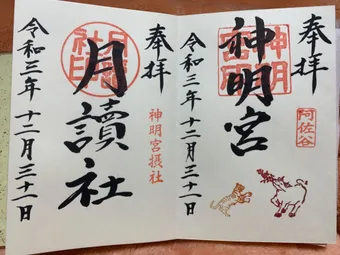 奉拝
阿佐谷
神明宮
神明宮
令和三年 十二月三十一日
奉拝
神明宮摂社
月讀社
月讀社印
令和三年 十二月三十一日